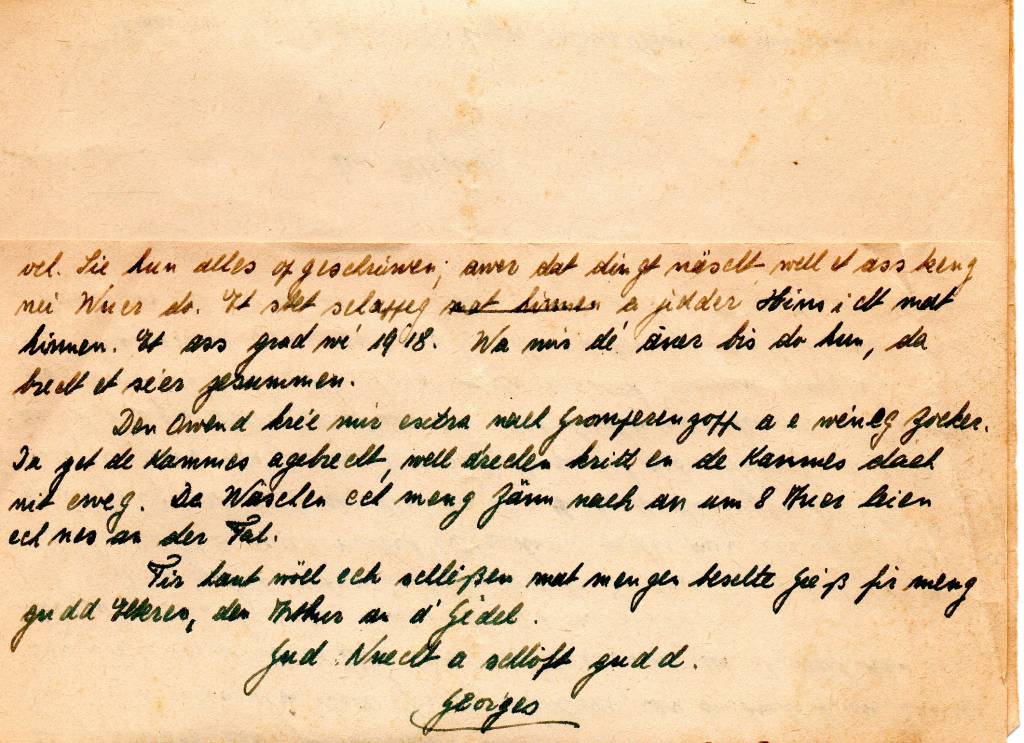 vel. Sie hun alles opgeschriwen, awer dat dingt näscht well et ass keng
nei Wuer do. Et set schappeg mat hinnen a jidder Hinsicht mat
hinnen. Et ass grad wé 1918. Wa mir dé äner bis do hun, da
brecht et séier zesummen.
Den Owend kréie mir extra nach Gromperenzopp a e wéneg Zocker.
Da get de Kammes agebrecht, well drechen kritt en de Kammes dach
nit eweg. Da Wäschen ech meng Zänn nach an um 8 Auer leien
ech nes an der Fal.
Fir haut wöll ech schléißen mat menger beschte Gréiß fir meng
gudd Elteren, den Arthur an d' Gédel.
Gud Nuecht a schlöft gudd.
Georges